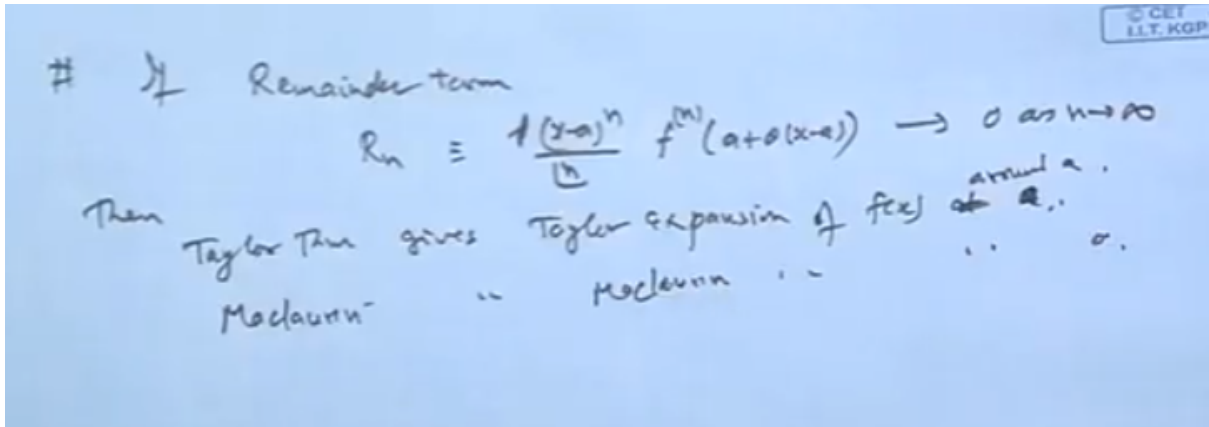 © CET
I.I.T. KGP
# If Remainder term
Rn ≡ 1 (x-a)^n / ⌊n f^(n) (a+θ(x-a)) → 0 as n→∞
Then
Taylor Thm gives Taylor expansion of f(x) around a.
Maclaurin " Maclaurin " " 0.